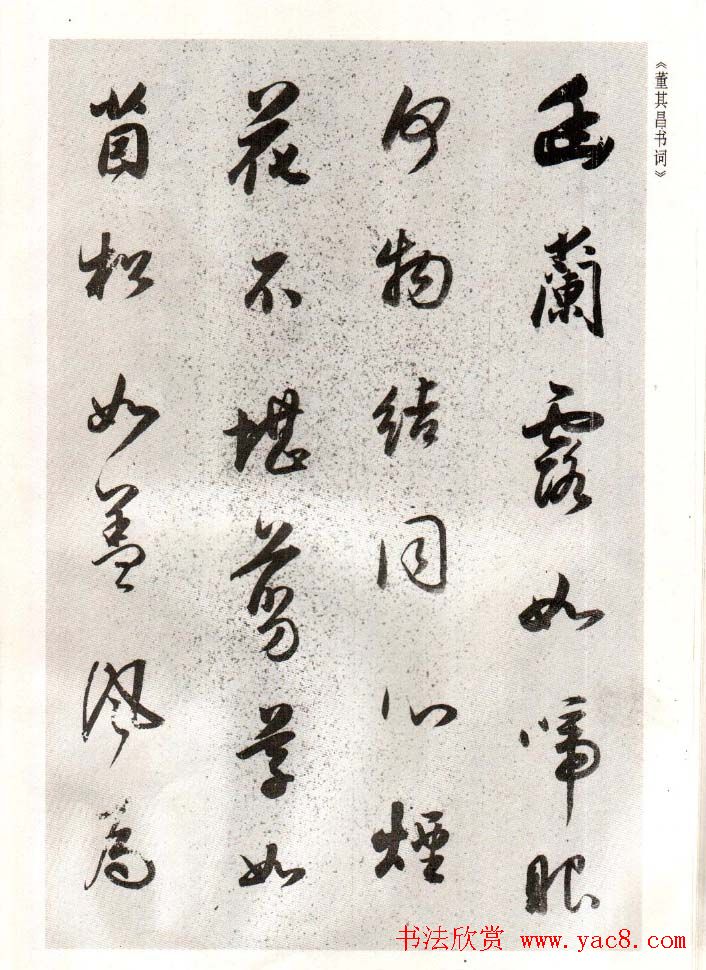 《董其昌书词》
幽蘭露如啼眼
何物結同心煙
花不堪剪草如
茵松如盖風為
书法欣赏 www.yac8.com